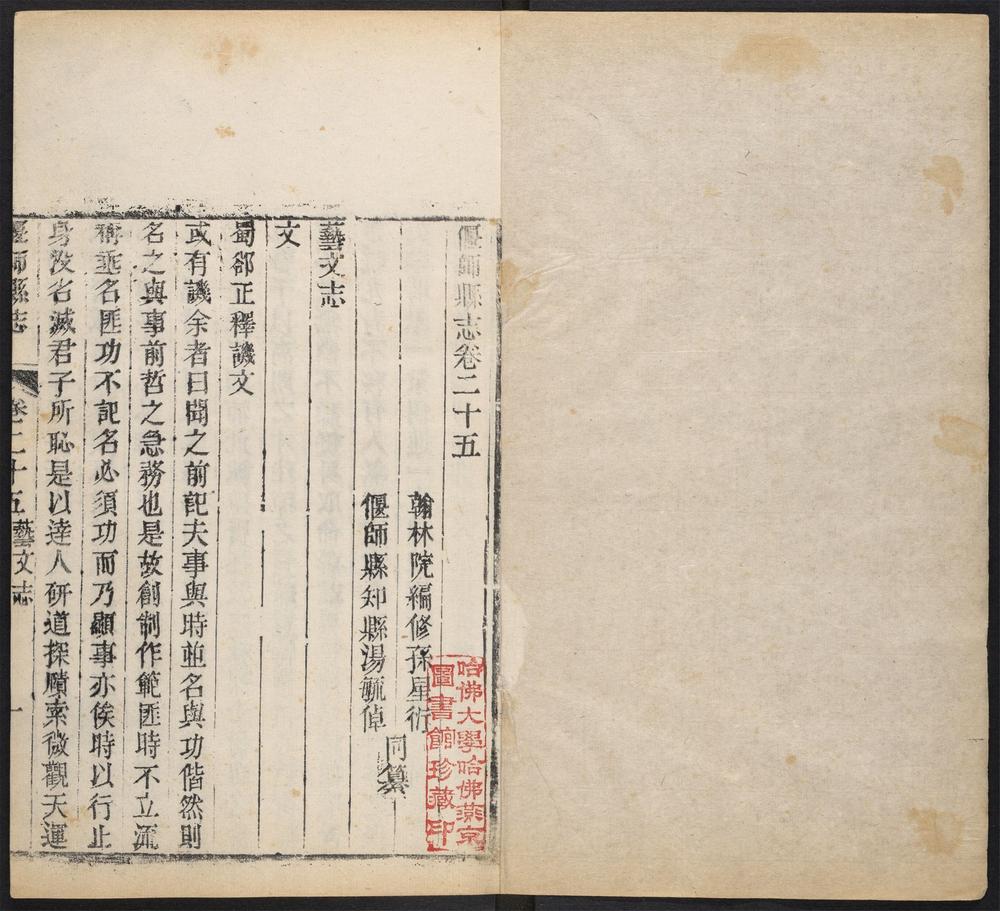 偃師縣志卷二十五
翰林院編修孫星衍
偃師縣知縣湯毓倬
同纂
藝文志
文
蜀郤正釋譏文
或有譏余者曰聞之前記夫事與時並名與功偕然則
名之與事前哲之急務也是故創制作範匪時不立流
稱垂名匪功不記名必須功而乃顯事亦俟時以行止
身没名滅君子所恥是以達人研道探賾索微觀天運
偃師縣志 卷二十五藝文志 一
哈佛大學哈佛燕京
圖書館珍藏印